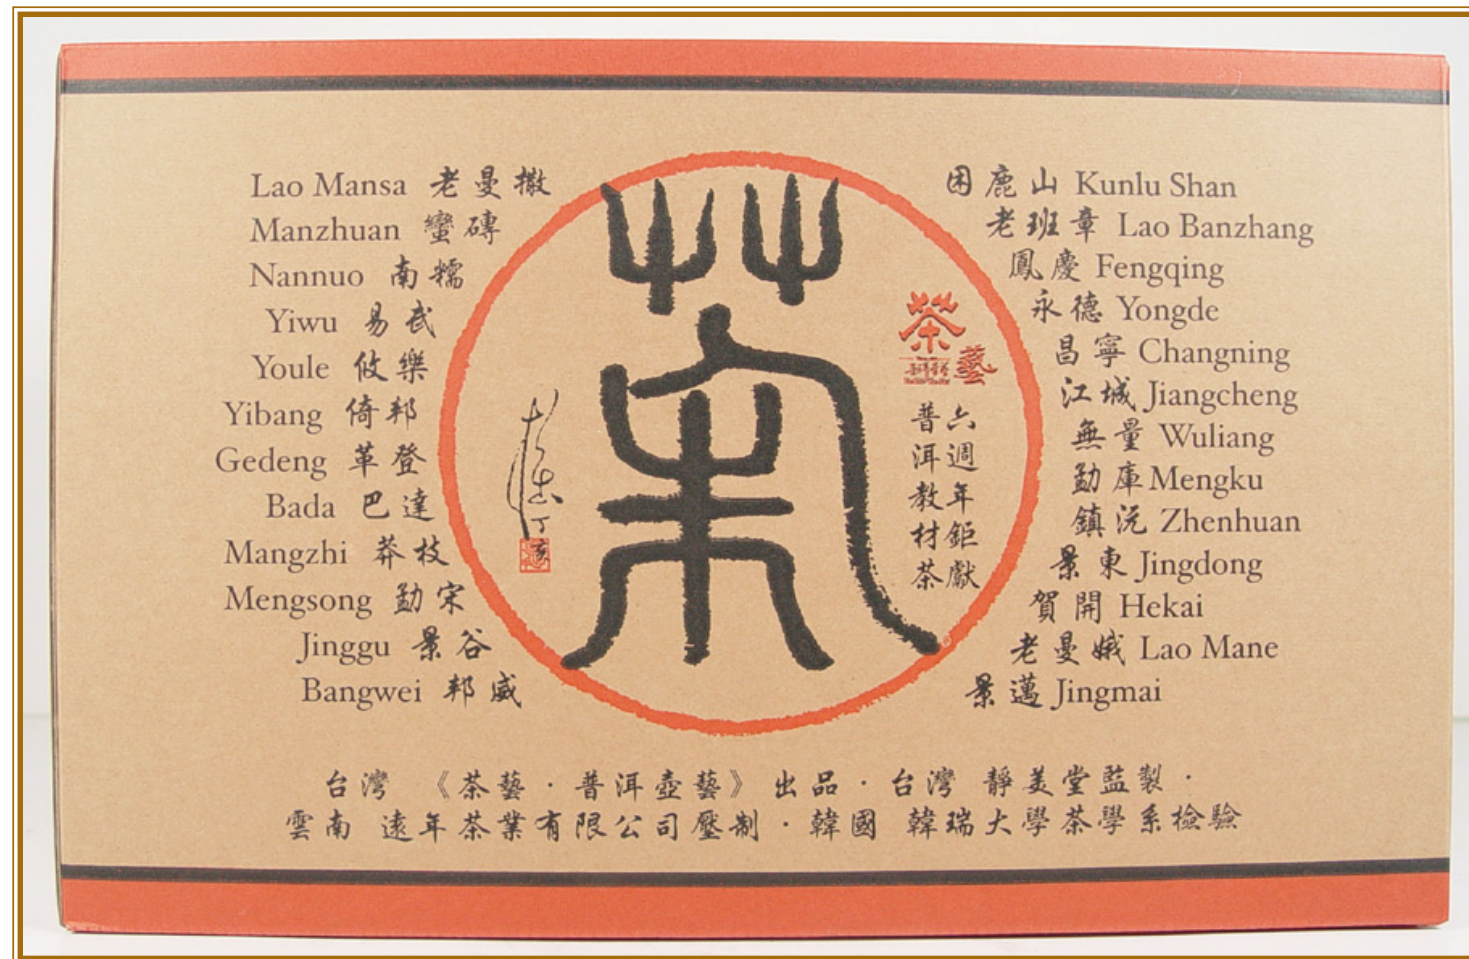 Lao Mansa 老曼撒
Manzhuan 蠻磚
Nannuo 南糯
Yiwu 易武
Youle 攸樂
Yibang 倚邦
Gedeng 革登
Bada 巴達
Mangzhi 莽枝
Mengsong 勐宋
Jinggu 景谷
Bangwei 邦崴
茶
茶藝
六週年鉅獻
普洱教材茶
丁亥
困鹿山 Kunlu Shan
老班章 Lao Banzhang
鳳慶 Fengqing
永德 Yongde
昌寧 Changning
江城 Jiangcheng
無量 Wuliang
勐庫 Mengku
鎮沅 Zhenhuan
景東 Jingdong
賀開 Hekai
老曼娥 Lao Mane
景邁 Jingmai
台灣 《茶藝·普洱壺藝》出品·台灣 靜美堂監製·
雲南 遠年茶業有限公司壓制·韓國 韓瑞大學茶學系檢驗